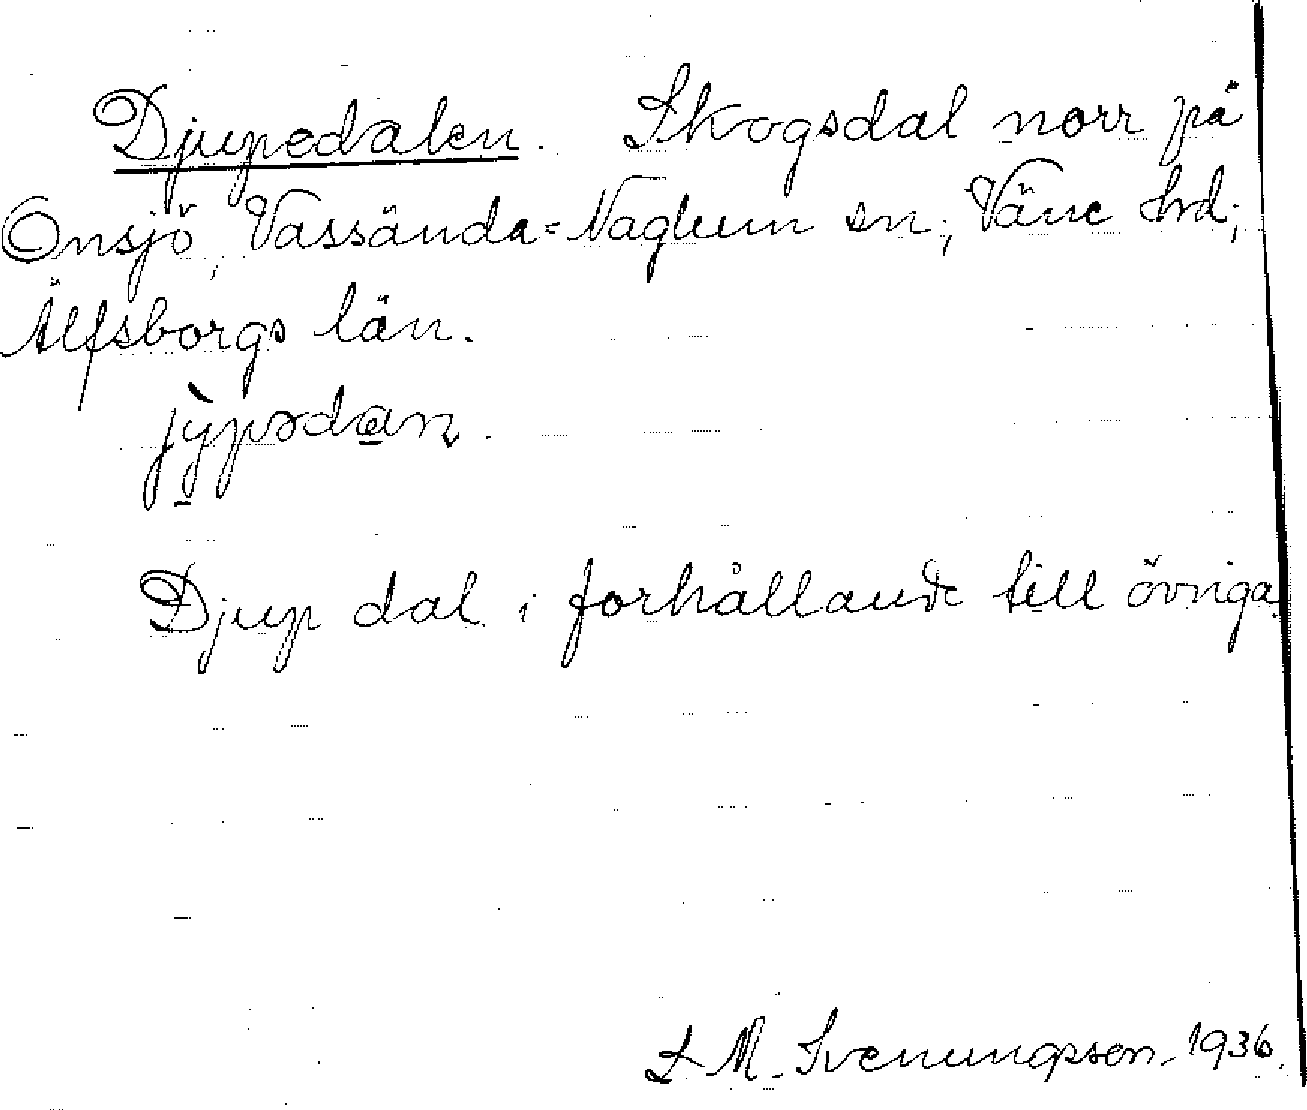 Djupedalen. Skogsdal norr på
Onsjö, Vassända-Naglum sn; Väne hrd;
Älfsborgs län.
jỳpədan.
Djup dal i förhållande till övriga.
S. M. Svenungsson. 1936.